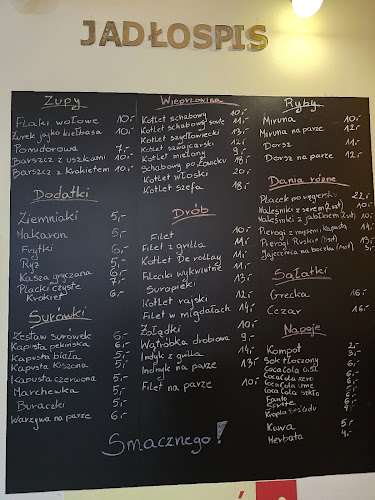 JADŁOSPIS
Zupy
Flaki wołowe 10,-
Żurek jajko kiełbasa 10,-
Pomidorowa 7,-
Barszcz z uszkami 10,-
Barszcz z krokietem 10,-
Dodatki
Ziemniaki 5,-
Makaron 5,-
Frytki 6,-
Ryż 5,-
Kasza gryczana 6,-
Placki czyste 7,-
Krokiet 6,-
Surówki
Zestaw surówek 6,-
Kapusta pekińska 6,-
Kapusta biała 5,-
Kapusta kiszona 5,-
Kapusta czerwona 5,-
Marchewka 5,-
Buraczki 5,-
Warzywa na parze 6,-
Wieprzowina
Kotlet schabowy 10,-
Kotlet schabowy 11,-
Kotlet szydłowiecki 13,-
Kotlet szwajcarski 12,-
Kotlet mielony 9,-
Schabowy po 13,-
Kotlet włoski 20,-
Kotlet szefa 18,-
Drób
Filet 10,-
Filet z grilla 11,-
Kotlet De vollay 11,-
Fileciki wykwintne 11,-
Suropieki 13,-
Kotlet rajski 12,-
Filet w migdałach 14,-
Żołądki 10,-
Wątróbka drobiowa 9,-
Indyk z grilla 14,-
Indyk na parze 13,-
Filet na parze 10,-
Smacznego!
Ryby
Miruna 10,-
Miruna na parze 10,-
Dorsz 11,-
Dorsz na parze 12,-
Dania różne
Placek po węgiersku 22,-
Naleśniki z serem 12,-
Naleśniki z jabłkiem 10,-
Pierogi z mięsem i kapustą 14,-
Pierogi Ruskie 13,-
Jajecznica na boczku
Sałatki
Grecka 16,-
Cezar 16,-
Napoje
Kompot 2,-
Sok tłoczony 3,-
Coca Cola 0,5L
Coca Cola zero
Coca Cola
Coca Cola szkło
Fanta
Sprite
Kropla Beskidu
Kawa 5,-
Herbata 4,-